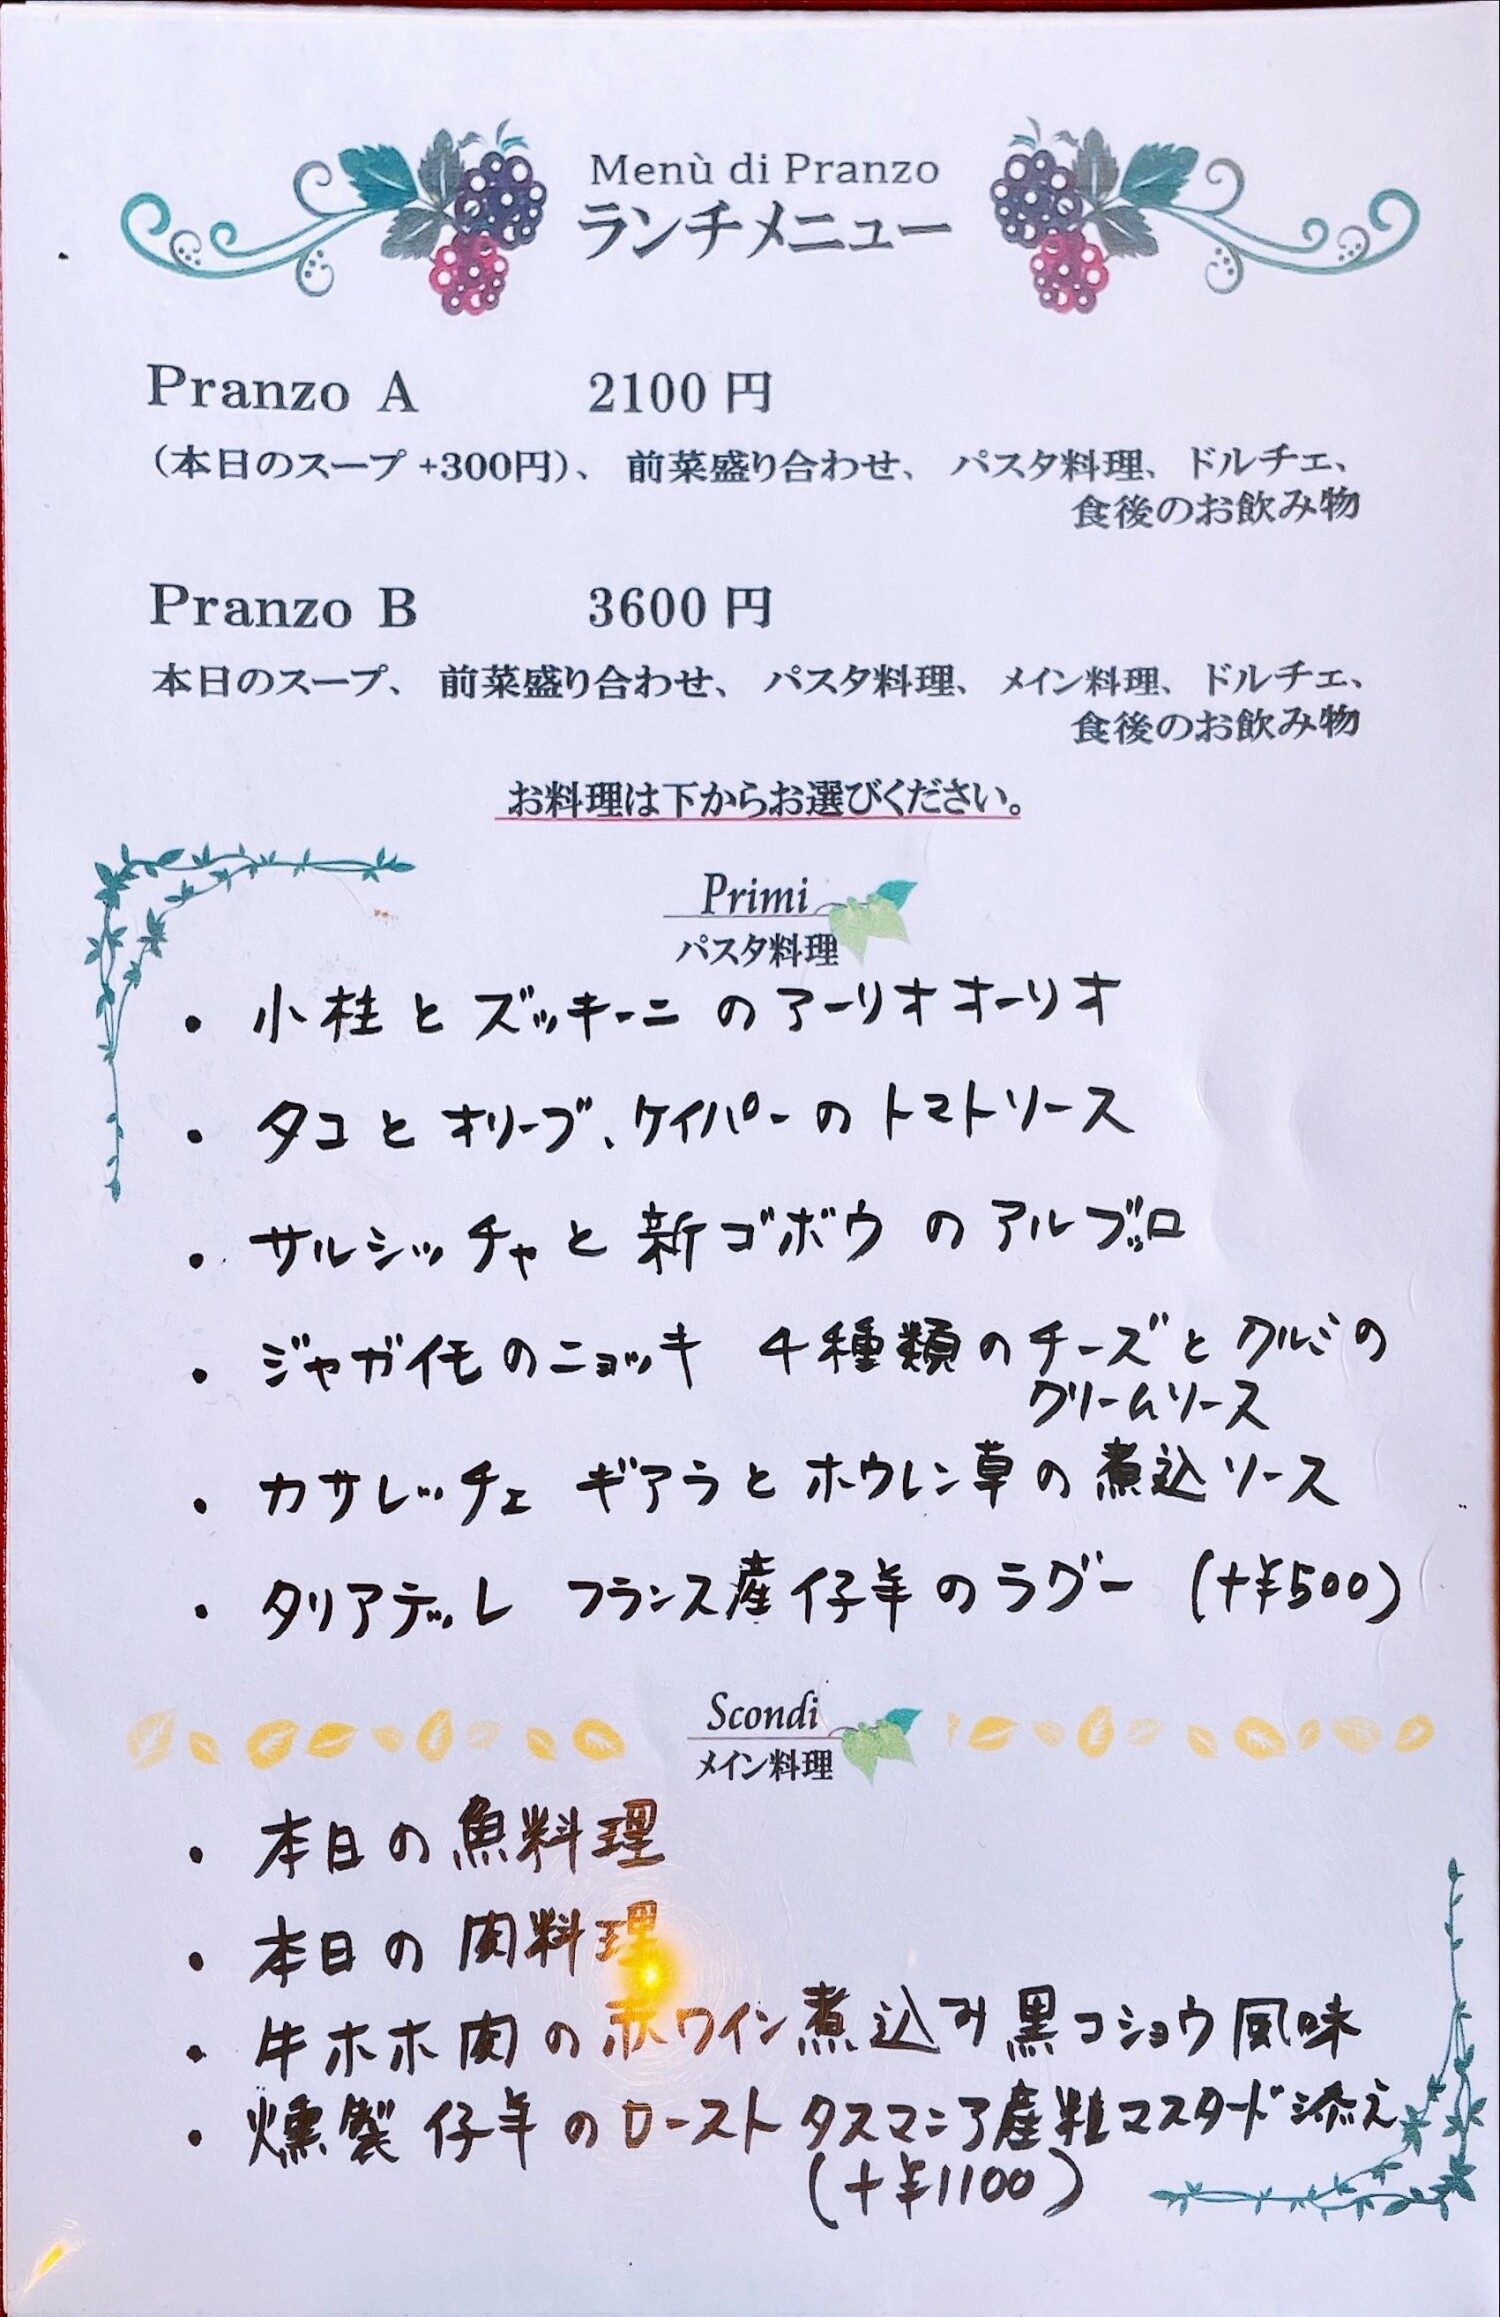 Menù di Pranzo
ランチメニュー
Pranzo A 2100 円
（本日のスープ +300円）、 前菜盛り合わせ、 パスタ料理、 ドルチェ、
食後のお飲み物
Pranzo B 3600 円
本日のスープ、 前菜盛り合わせ、 パスタ料理、 メイン料理、 ドルチェ、
食後のお飲み物
お料理は下からお選びください。
Primi
パスタ料理
・ 小柱とズッキーニのアーリオオーリオ
・ タコとオリーブ、ケイパーのトマトソース
・ サルシッチャと新ゴボウのアルブッロ
・ ジャガイモのニョッキ 4種類のチーズとクルミの
クリームソース
・ カサレッチェ ギアラとホウレン草の煮込ソース
・ タリアテッレ フランス産仔羊のラグー (+¥500)
Scondi
メイン料理
・ 本日の魚料理
・ 本日の肉料理
・ 牛ホホ肉の赤ワイン煮込み黒コショウ風味
・ 燻製仔羊のロースト タスマニア産粒マスタード添え
(+¥1100)